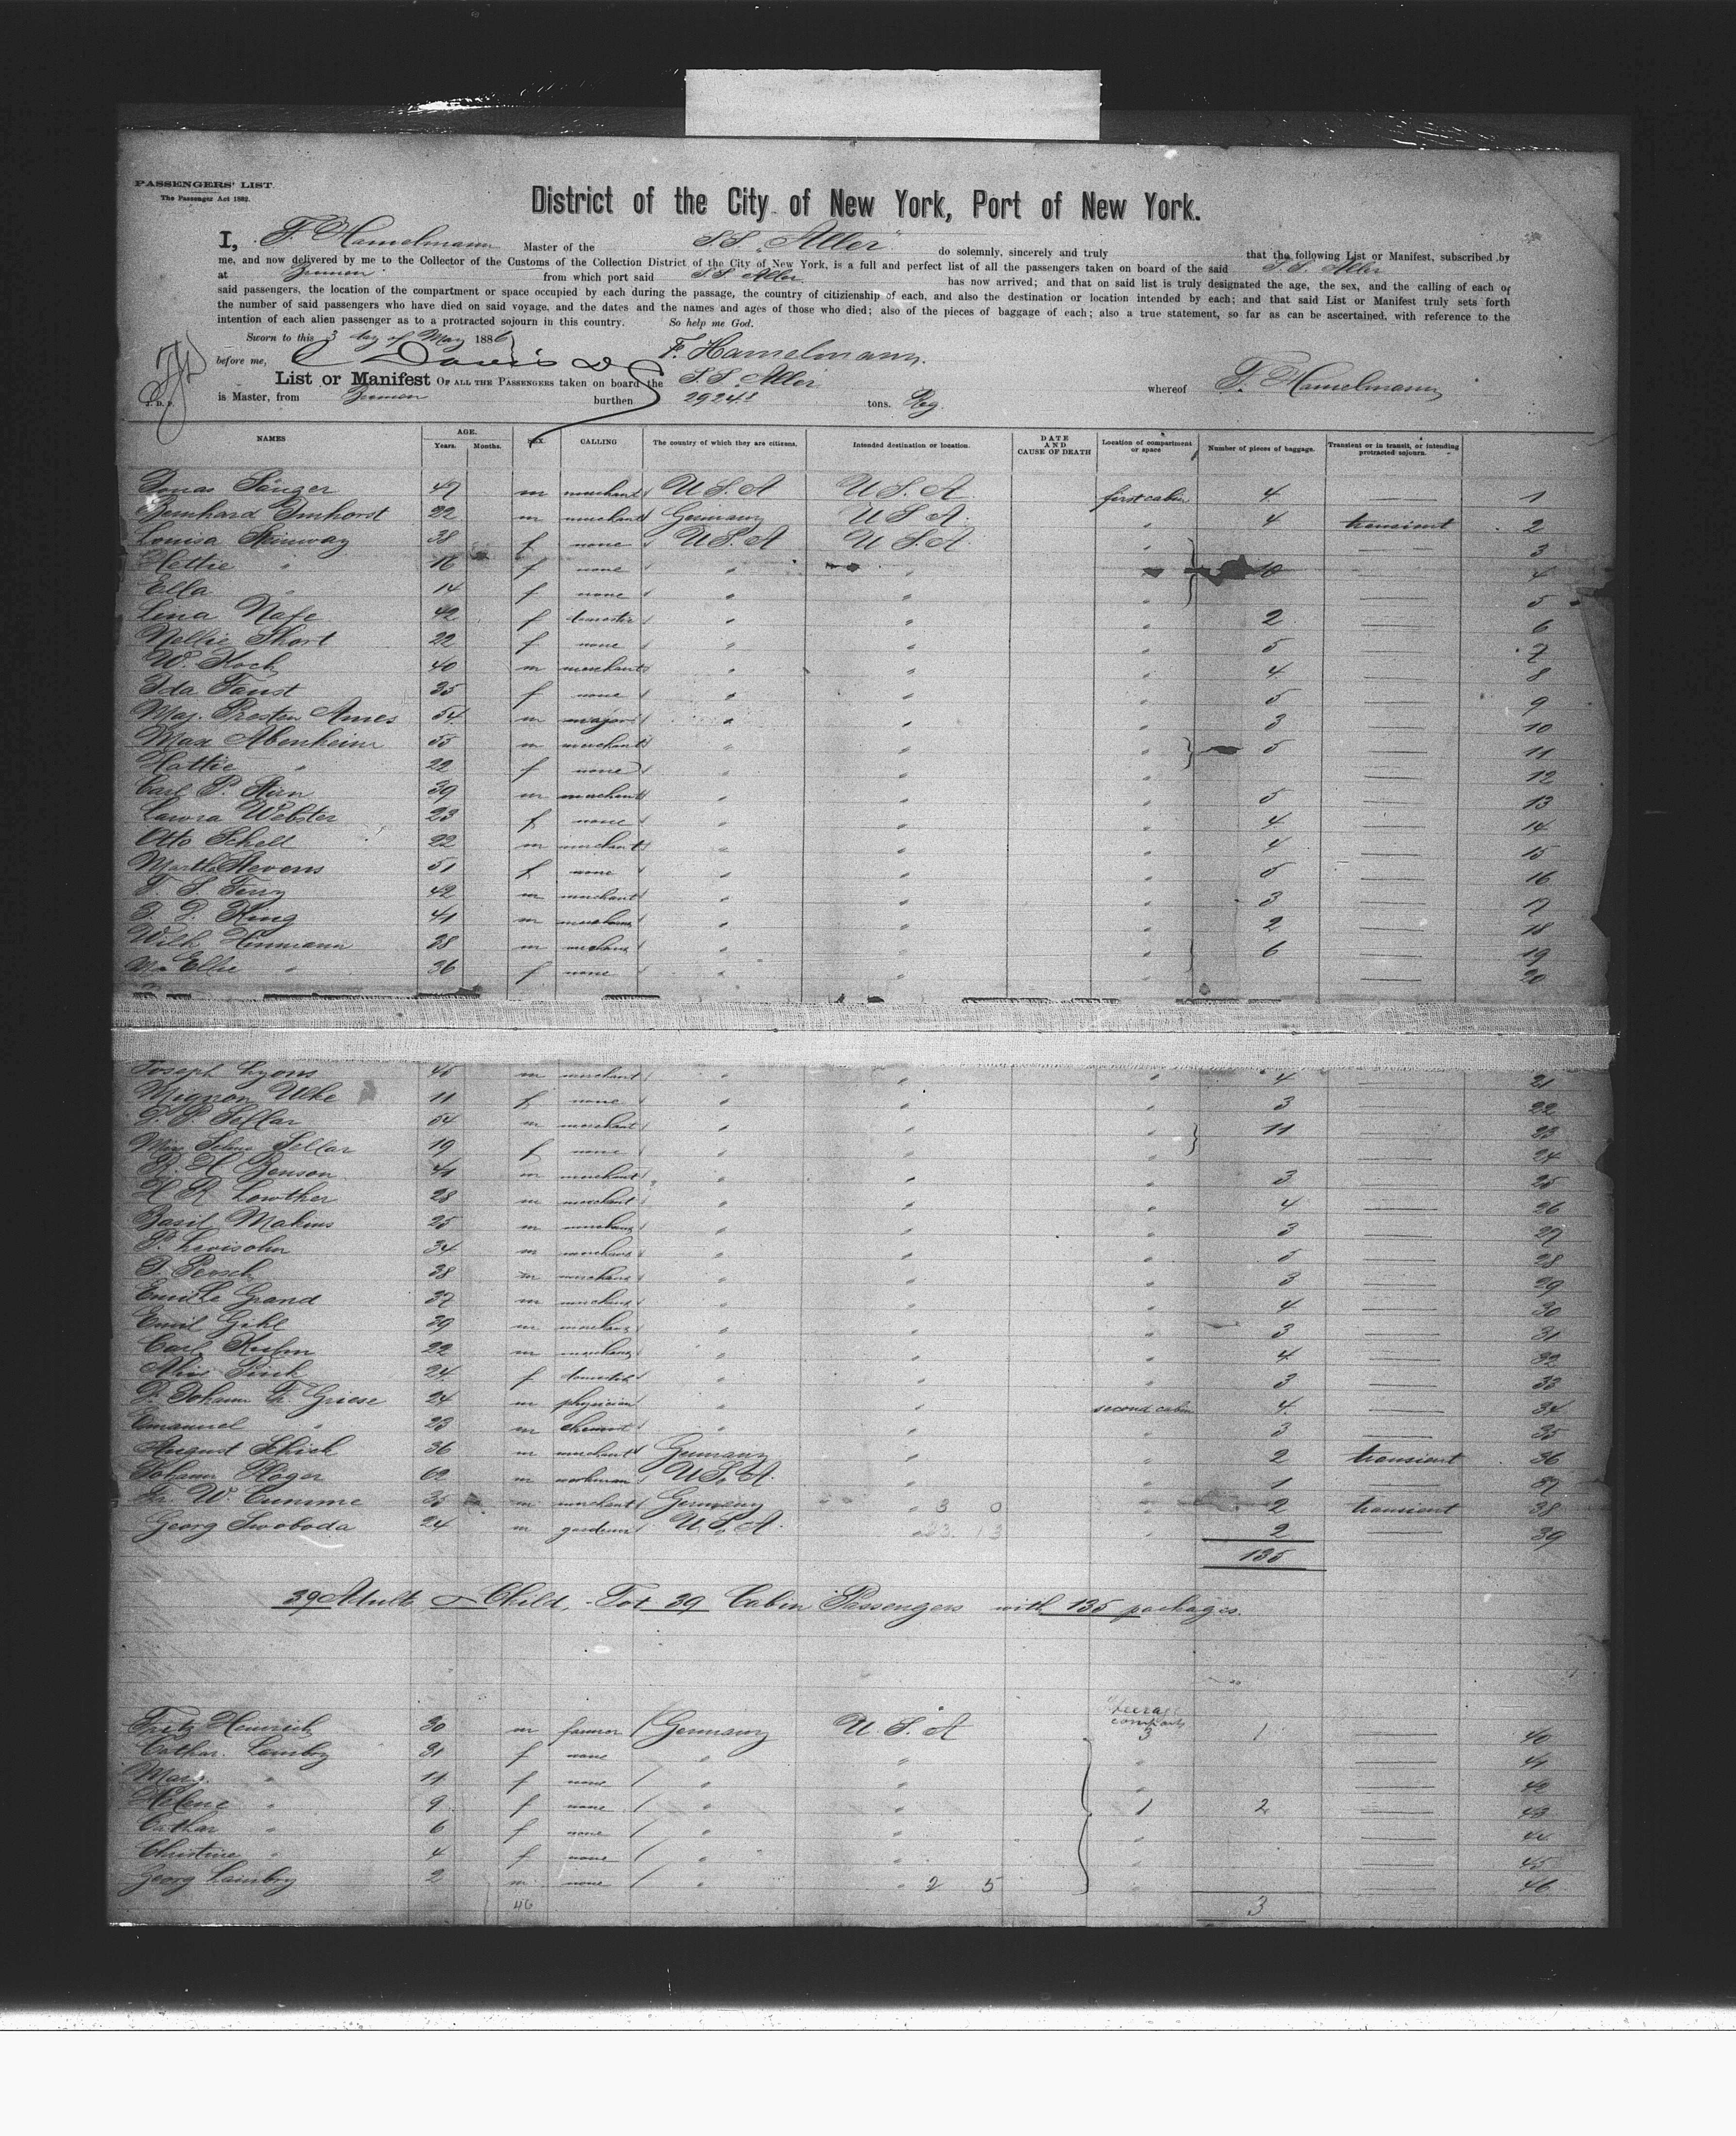 PASSENGERS' LIST.
The Passenger Act 1882.
District of the City of New York, Port of New York.
I, F. Hamelmann Master of the S.S. "Aller" do solemnly, sincerely and truly that the following List or Manifest, subscribed by
me, and now delivered by me to the Collector of the Customs of the Collection District of the City of New York, is a full and perfect list of all the passengers taken on board of the said S.S. Aller
at Bremen from which port said S.S. Aller has now arrived; and that on said list is truly designated the age, the sex, and the calling of each of
said passengers, the location of the compartment or space occupied by each during the passage, the country of citizienship of each, and also the destination or location intended by each; and that said List or Manifest truly sets forth
the number of said passengers who have died on said voyage, and the dates and the names and ages of those who died; also of the pieces of baggage of each; also a true statement, so far as can be ascertained, with reference to the
intention of each alien passenger as to a protracted sojourn in this country. So help me God.
Sworn to this 3 day of May 1886
before me, C Davis F. Hamelmann.
List or Manifest OF ALL THE PASSENGERS taken on board the S.S. Aller whereof F. Hamelmann
is Master, from Bremen burthen 2924 tons. Reg.
NAMES AGE. Years. Months. SEX. CALLING The country of which they are citizens. Intended destination or location. DATE AND CAUSE OF DEATH Location of compartment or space Number of pieces of baggage. Transient or in transit, or intending protracted sojourn.
Jonas Sänger 47 m merchant U.S.A U.S.A. first cabin 4 — 1
Bernhard Imhorst 22 m merchant Germany U.S.A. " 4 transient 2
Louisa Steinway 38 f none U.S.A U.S.A. " — 3
Hettie " 16 f none " " 10 — 4
Ella " 14 f none " " " — 5
Lena Nafe 42 f domestic " " " 2 — 6
Nellie Short 22 f none " " " 5 — 7
W. Koch 40 m merchant " " " 4 — 8
Ida Faust 35 f none " " " 5 — 9
Maj. Preston Ames 54 m major " " " 3 — 10
Max Abenheim 55 m merchant " " " 5 — 11
Hattie " 22 f none " " " — 12
Carl P. Stirn 39 m merchant " " " 5 — 13
Laura Webster 23 f none " " " 4 — 14
Otto Schell 22 m merchant " " " 4 — 15
Martha Stevens 51 f none " " " 5 — 16
T. S. Terry 42 m merchant " " " 3 — 17
King 41 m merchant " " " 2 — 18
Wilh. 38 m merchant " " " 6 — 19
Ellie " 36 f none " " " — 20
Joseph Lyons 45 m merchant " " " 4 — 21
Mignon Uhe 11 f none " " " 3 — 22
Sellar 54 m merchant " " " 11 — 23
Miss Selma Sellar 19 f none " " " — 24
H. Benson 41 m merchant " " " 3 — 25
H. R. Lowther 28 m merchant " " " 4 — 26
Basil Makins 25 m merchant " " " 3 — 27
P. Lewisohn 34 m merchant " " " 5 — 28
Persch 38 m merchant " " " 3 — 29
Emile Grand 37 m merchant " " " 4 — 30
Emil Gihl 39 m merchant " " " 3 — 31
Carl Kuhn 22 m merchant " " " 4 — 32
24 f domestic " " " 3 — 33
Johann Griese 24 m physician " " second cabin 4 — 34
Emanuel " 23 m chemist " " " 3 — 35
August Schick 36 m merchant Germany " " 2 transient 36
Johann Plöger 62 m workman U.S.A. " " 1 — 37
Fr. W. Cumme 35 m merchant Germany " 3 0 " 2 transient 38
Georg Swoboda 24 m gardener U.S.A. " 23. 13 " 2 — 39
135
39 Adult & — Child, - Tot 39 Cabin Passengers with 135 packages.
Fritz Heinrich 30 m farmer Germany U.S.A steerage 3 1 — 40
Cathar. Lambry 31 f none " " " — 41
Marg. " 11 f none " " " — 42
Helene " 9 f none " " 1 2 — 43
Cathar " 6 f none " " " — 44
Christine " 4 f none " " " — 45
Georg Lambry 2 m none " " 2 5 " — 46
46 3